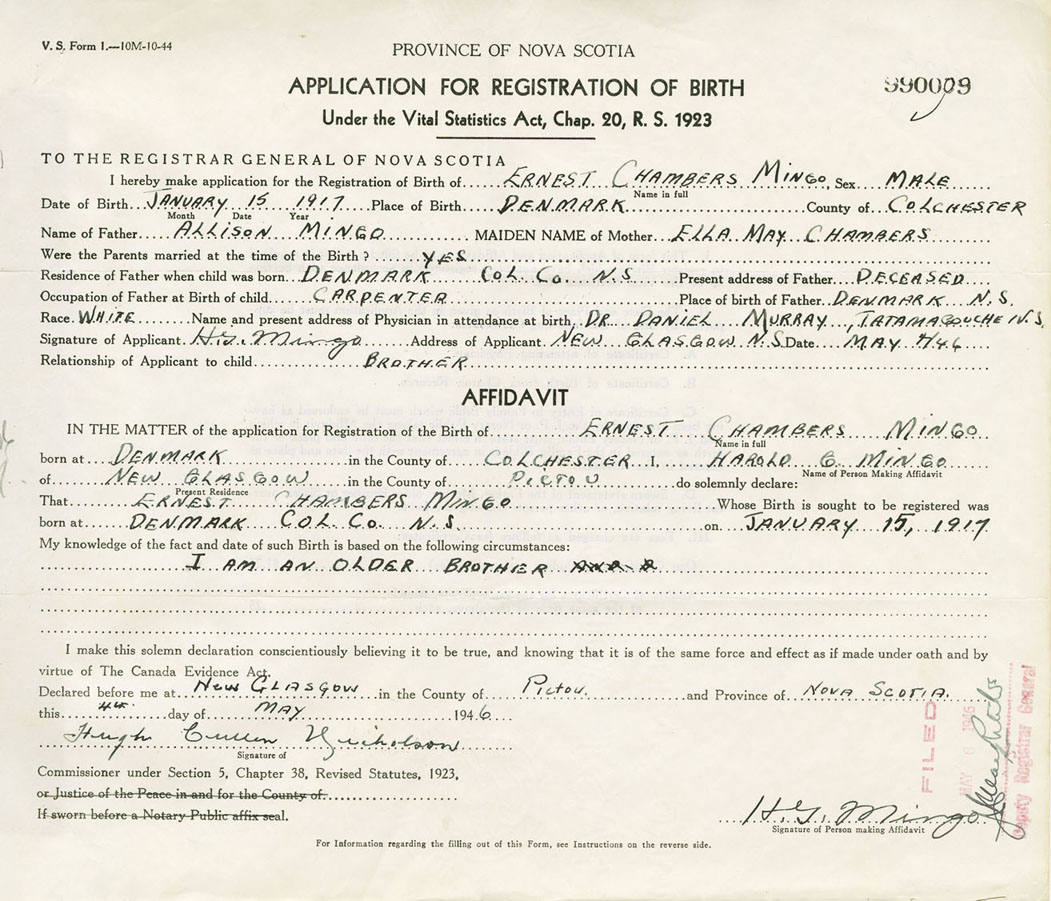 V. S. Form 1.—10M-10-44
PROVINCE OF NOVA SCOTIA
APPLICATION FOR REGISTRATION OF BIRTH
990009
Under the Vital Statistics Act, Chap. 20, R. S. 1923
TO THE REGISTRAR GENERAL OF NOVA SCOTIA
I hereby make application for the Registration of Birth of ERNEST CHAMBERS MINGO, Sex MALE
Name in full
Date of Birth JANUARY 15 1917 Place of Birth DENMARK County of COLCHESTER
Month Date Year
Name of Father ALLISON MINGO MAIDEN NAME of Mother ELLA MAY CHAMBERS
Were the Parents married at the time of the Birth? YES
Residence of Father when child was born DENMARK COL. CO. N.S Present address of Father DECEASED
Occupation of Father at Birth of child CARPENTER Place of birth of Father DENMARK N.S.
Race WHITE Name and present address of Physician in attendance at birth, DR. DANIEL MURRAY, TATAMAGOUCHE N.S.
Signature of Applicant H.G. Mingo Address of Applicant NEW GLASGOW N.S. Date MAY 4/46
Relationship of Applicant to child BROTHER
AFFIDAVIT
IN THE MATTER of the application for Registration of the Birth of ERNEST CHAMBERS MINGO
Name in full
born at DENMARK in the County of COLCHESTER I, HAROLD G. MINGO
Name of Person Making Affidavit
of NEW GLASGOW in the County of PICTOU do solemnly declare:
Present Residence
That ERNEST CHAMBERS MINGO Whose Birth is sought to be registered was
born at DENMARK COL. CO. N.S. on JANUARY 15, 1917
My knowledge of the fact and date of such Birth is based on the following circumstances:
I AM AN OLDER BROTHER
I make this solemn declaration conscientiously believing it to be true, and knowing that it is of the same force and effect as if made under oath and by
virtue of The Canada Evidence Act.
Declared before me at New GLASGOW in the County of Pictou and Province of NOVA SCOTIA.
this 4th day of MAY 1946
Hugh Cullen Nicholson
Signature of
Commissioner under Section 5, Chapter 38, Revised Statutes, 1923,
or Justice of the Peace in and for the County of
If sworn before a Notary Public affix seal.
H. G. Mingo
Signature of Person making Affidavit
For Information regarding the filling out of this Form, see Instructions on the reverse side.
FILED
MAY
Deputy Registrar General